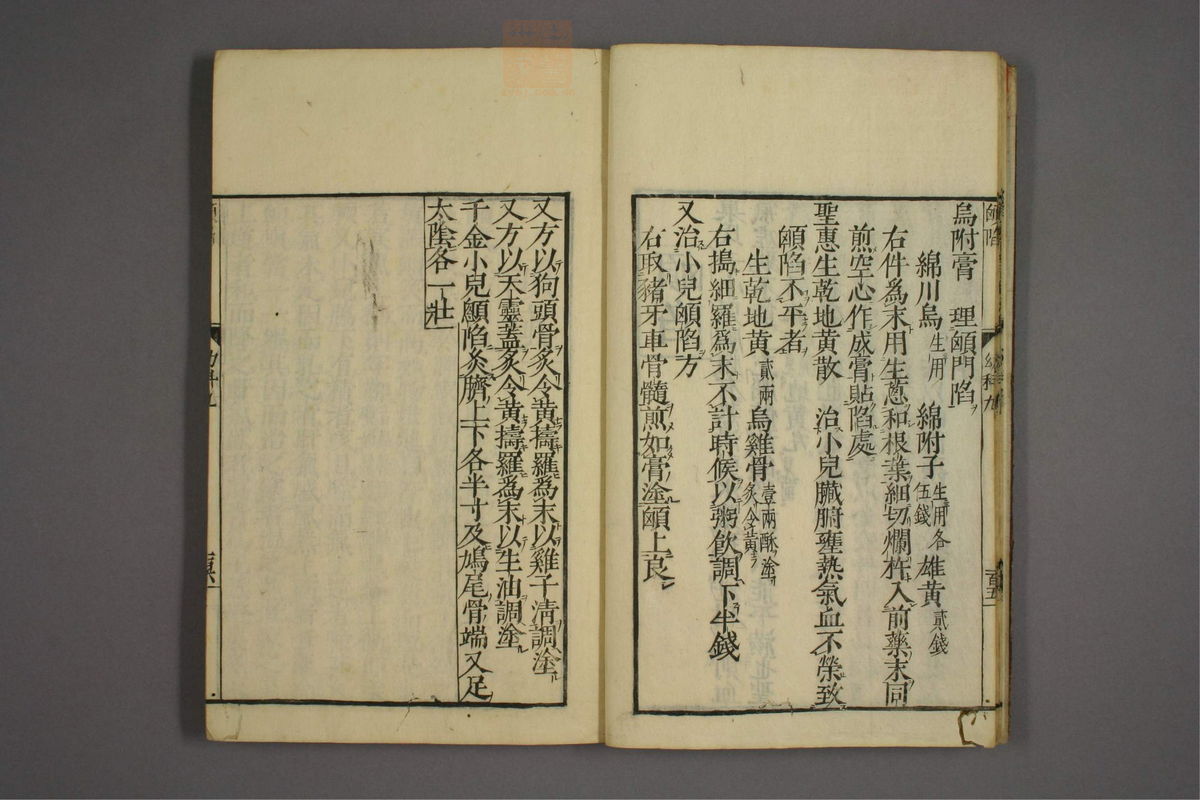 顖陷
幼科九
百五
烏附膏　理顖門陷ヲ
綿川烏生用　綿附子生用各伍錢　雄黄貳錢
右件爲末用生葱和根葉細切爛杵入前藥末同
煎空心作成膏貼陷處
聖惠生乾地黄散　治小兒臟腑壅熱氣血不榮致
顖陷不平者
生乾地黄貳兩烏雞骨壹兩酥塗炙令黄
右搗細羅爲末不計時候以粥飲調下半錢
又治小兒顖陷方
右取豬牙車骨髓煎如膏塗顖上良
又方以狗頭骨炙令黄擣羅爲末以雞子淸調塗
又方以天靈蓋炙令黄擣羅爲末以生油調塗
千金小兒顖陷灸臍上下各半寸及鳩尾骨端又足
太陰各一壯